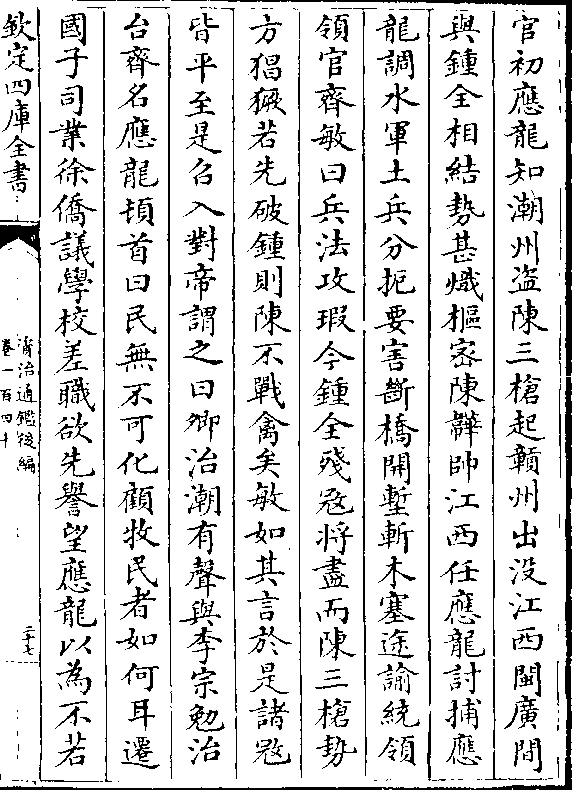 官初應龍知潮州盗陳三槍起贑州出没江西閩廣間
與鍾全相結勢甚熾樞宻陳韡帥江西任應龍討捕應
龍調水軍土兵分扼要害斷橋開塹斬木塞途諭統領
領官齊敏曰兵法攻瑕今鍾全殘寇将盡而陳三槍勢
方猖獗若先破鍾則陳不戰禽矣敏如其言於是諸寇
皆平至是召入對帝謂之曰卿治潮有聲與李宗勉治
台齊名應龍頓首曰民無不可化顧牧民者如何耳遷
國子司業徐僑議學校差職欲先譽望應龍以為不若
欽定四庫全書
資治通鑑後編
卷一百四十
二十七